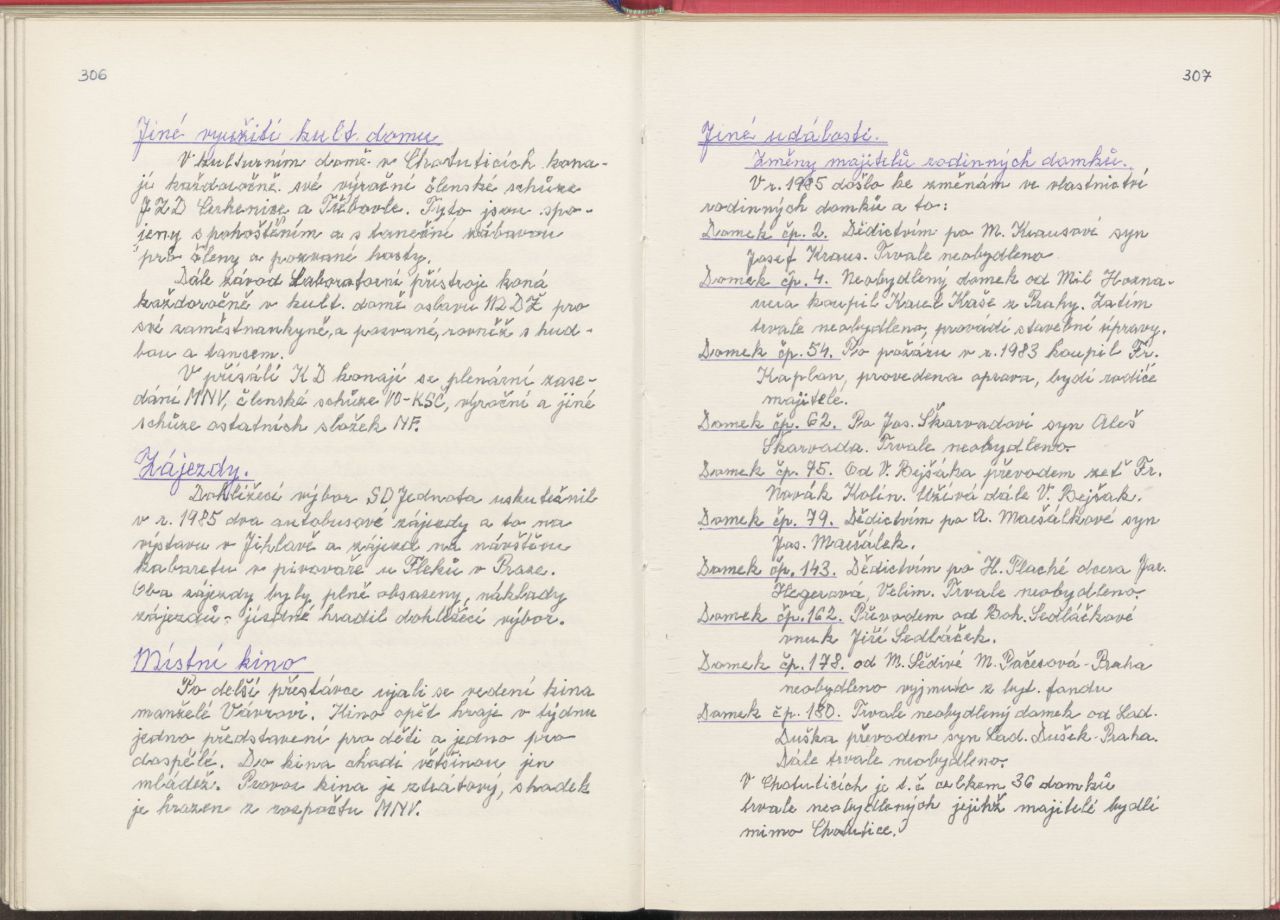 306
Jiné využití kult. domu
V kulturním domě v Chotuticích kona-
jí každoročně své výroční členské schůze
JZD Cerkenice a Třebovle. Tyto jsou spo-
jeny s pohoštěním a s taneční zábavou
pro členy a pozvané hosty.
Dále závod Laboratorní přístroje koná
každoročně v kult. domě oslavu MDŽ pro
své zaměstnankyně, a pozvané, rovněž s hud-
bou a tancem.
V přísálí KD konají se plenární zase-
dání MNV, členské schůze VO-KSČ, výroční a jiné
schůze ostatních složek NF.
Zájezdy.
Dohlížecí výbor SD Jednota uskutečnil
v r. 1985 dva autobusové zájezdy a to na
výstavu v Jihlavě a zájezd na návštěvu
kabaretu v pivovaře u Fleků v Praze.
Oba zájezdy byly plně obsazeny, náklady
zájezdů - jízdné hradil dohlížecí výbor.
Místní kino
Po delší přestávce ujali se vedení kina
manželé Vávrovi. Kino opět hraje v týdnu
jedno představení pro děti a jedno pro
dospělé. Do kina chodí většinou jen
mládež. Provoz kina je ztrátový, schodek
je hrazen z rozpočtu MNV.
307
Jiné události.
Změny majitelů rodinných domků.
V r. 1985 došlo ke změnám ve vlastnictví
rodinných domků a to:
Domek čp. 2. Dědictvím po M. Krausové syn
Josef Kraus. Trvale neobydleno
Domek čp. 4. Neobydlený domek od Mil Hosna-
ura koupil Karel Kaše z Prahy. Zatím
trvale neobydleno, provádí stavební úpravy.
Domek čp. 54. Po požáru v r. 1983 koupil Fr.
Kaplan, provedena oprava, bydlí rodiče
majitele.
Domek čp. 62. Po Jos. Škarvadovi syn Aleš
Škarvada. Trvale neobydleno.
Domek čp. 75. Od V. Bejšáka převodem zeť Fr.
Novák Kolín. Užívá dále V. Bejšak.
Domek čp. 79. Dědictvím po A. Maršálkové syn
Jos. Maršálek.
Domek čp. 143. Dědictvím po H. Plaché dcera Jar.
Hegerová, Velim. Trvale neobydleno.
Domek čp. 162. Převodem od Boh. Sedláčkové
vnuk Jiří Sedláček.
Domek čp. 178. od M. Šedivé M. Pačesová - Praha
neobydleno vyjmuto z byt. fondu
Domek čp. 180. Trvale neobydlený domek od Lad.
Duška převodem syn Lad. Dušek - Praha.
Dále trvale neobydleno.
V Chotuticích je t. č. celkem 36 domků
trvale neobydlených jejichž majitelé bydlí
mimo Chotutice.